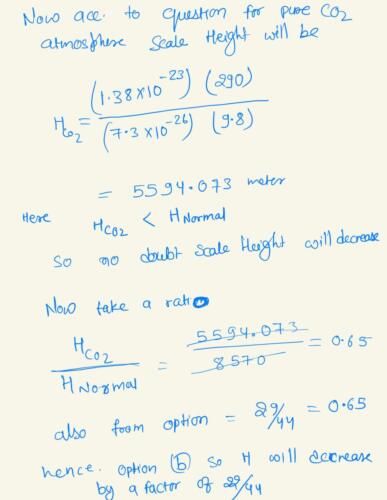 Now acc. to question for pure CO2
atmosphere scale Height will be
H_CO2 = (1.38×10^-23) (290) / (7.3×10^-26) (9.8)
= 5594.073 meter
Here H_CO2 < H_Normal
So no doubt scale Height will decrease
Now take a ratio
H_CO2 / H_Normal = 5594.073 / 8570 = 0.65
also from option = 29/44 = 0.65
hence. option (b) so H will decrease
by a factor of 29/44